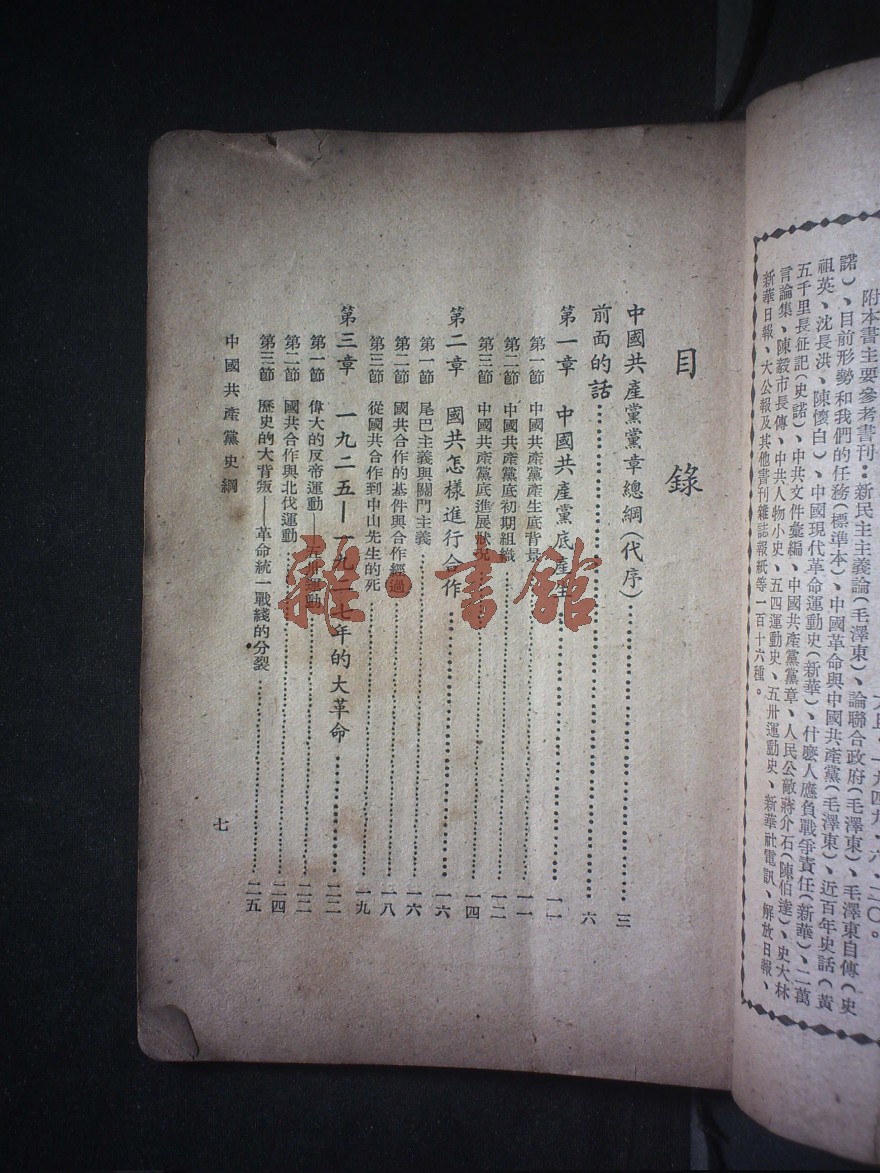 附本書主要參考書刊：新民主主義論(毛澤東)、論聯合政府(毛澤東)、毛澤東自傳(史
諾)、目前形勢和我們的任務(標準本)、中國革命與中國共產黨(毛澤東)、近百年史話(黃
祖英、沈長洪、陳懷白)、中國現代革命運動史(新華)、什麽人應負戰爭責任(新華)、二萬
五千里長征記(史諾)、中共文件彙編、中國共產黨黨章、人民公敵蔣介石(陳伯達)、史大林
言論集、陳毅市長傳、中共人物小史、五四運動史、五卅運動史、新華社電訊、解放日報、
新華日報、大公報及其他書刊雜誌報紙等一百十六種。
一九四九、六、二〇。
目錄
中國共產黨黨章總綱(代序)……三
前面的話……六
第一章 中國共產黨底產生……一一
第一節 中國共產黨產生底背景……一一
第二節 中國共產黨底初期組織……一二
第三節 中國共產黨底進展狀況……一四
第二章 國共怎樣進行合作……一六
第一節 尾巴主義與關門主義……一六
第二節 國共合作的基件與合作經過……一八
第三節 從國共合作到中山先生的死……一九
第三章 一九二五—一九二七年的大革命……二二
第一節 偉大的反帝運動——五卅運動……二二
第二節 國共合作與北伐運動……二四
第三節 歷史的大背叛——革命統一戰綫的分裂……二五
中國共產黨史綱
七
雜·書館